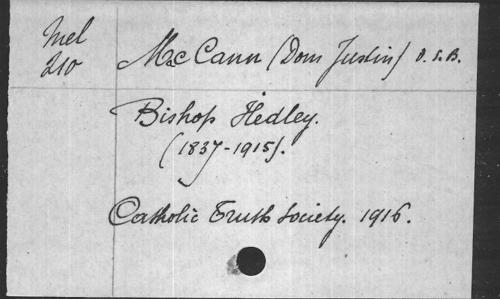 Mel
210
McCann (Dom Justin) O.S.B.
Bishop Hedley.
(1837-1915).
Catholic Truth Society. 1916.